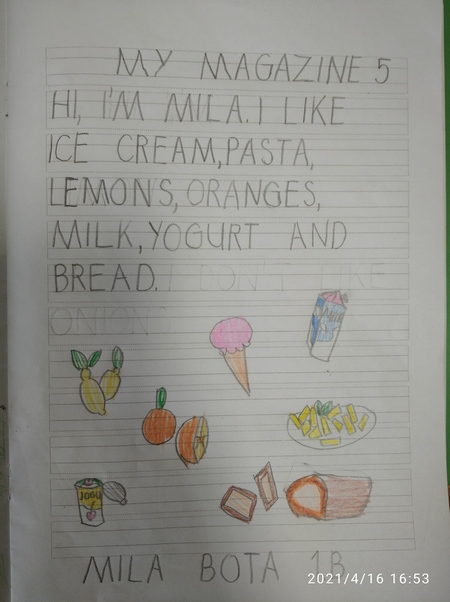 MY MAGAZINE 5
HI, I'M MILA. I LIKE
ICE CREAM, PASTA,
LEMONS, ORANGES,
MILK, YOGURT AND
BREAD. I DON'T LIKE
ONION
JOGU
MILA BOTA 1B
2021/4/16 16:53